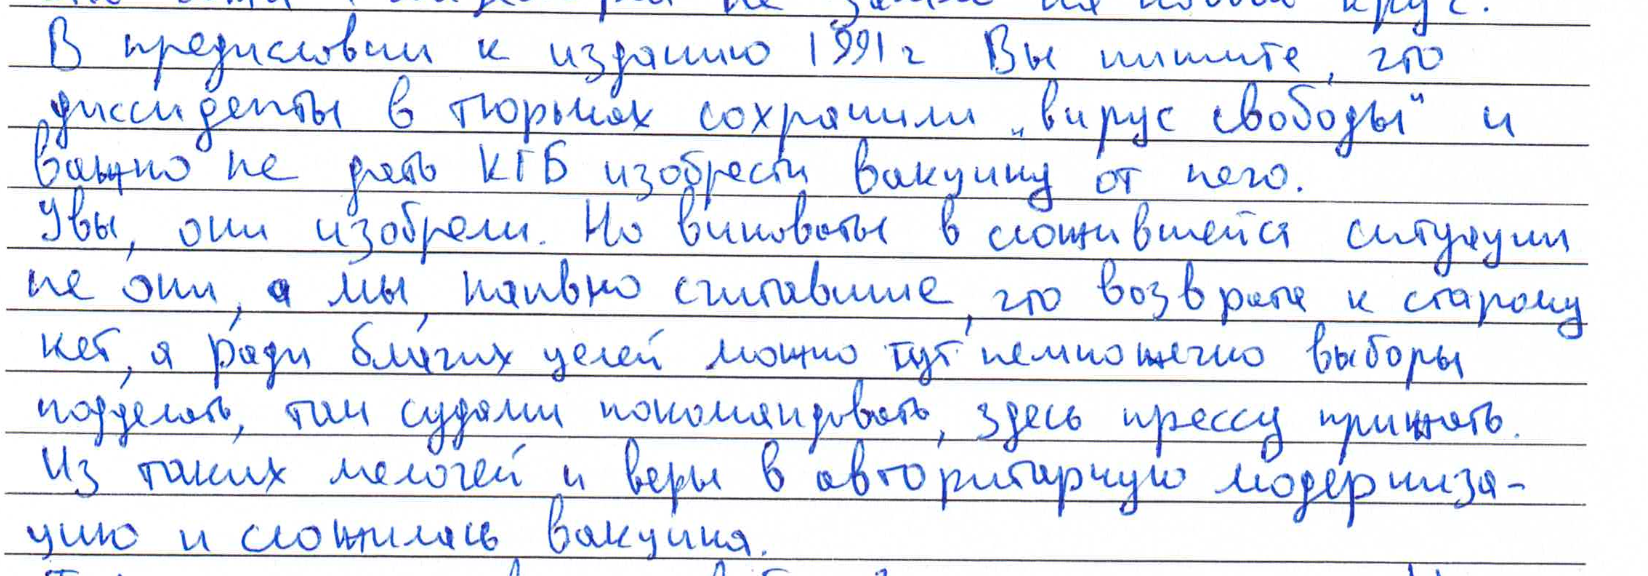 В предисловии к изданию 1991г Вы пишите, что
диссиденты в тюрьмах сохранили „вирус свободы" и
важно не дать КГБ изобрести вакцину от него.
Увы, они изобрели. Но виноваты в сложившейся ситуации
не они, а мы, наивно считавшие, что возврата к старому
нет, а ради благих целей можно тут немножечко выборы
подделать, там судами покомандовать, здесь прессу прижать.
Из таких мелочей и веры в авторитарную модерниза-
цию и сложилась вакцина.